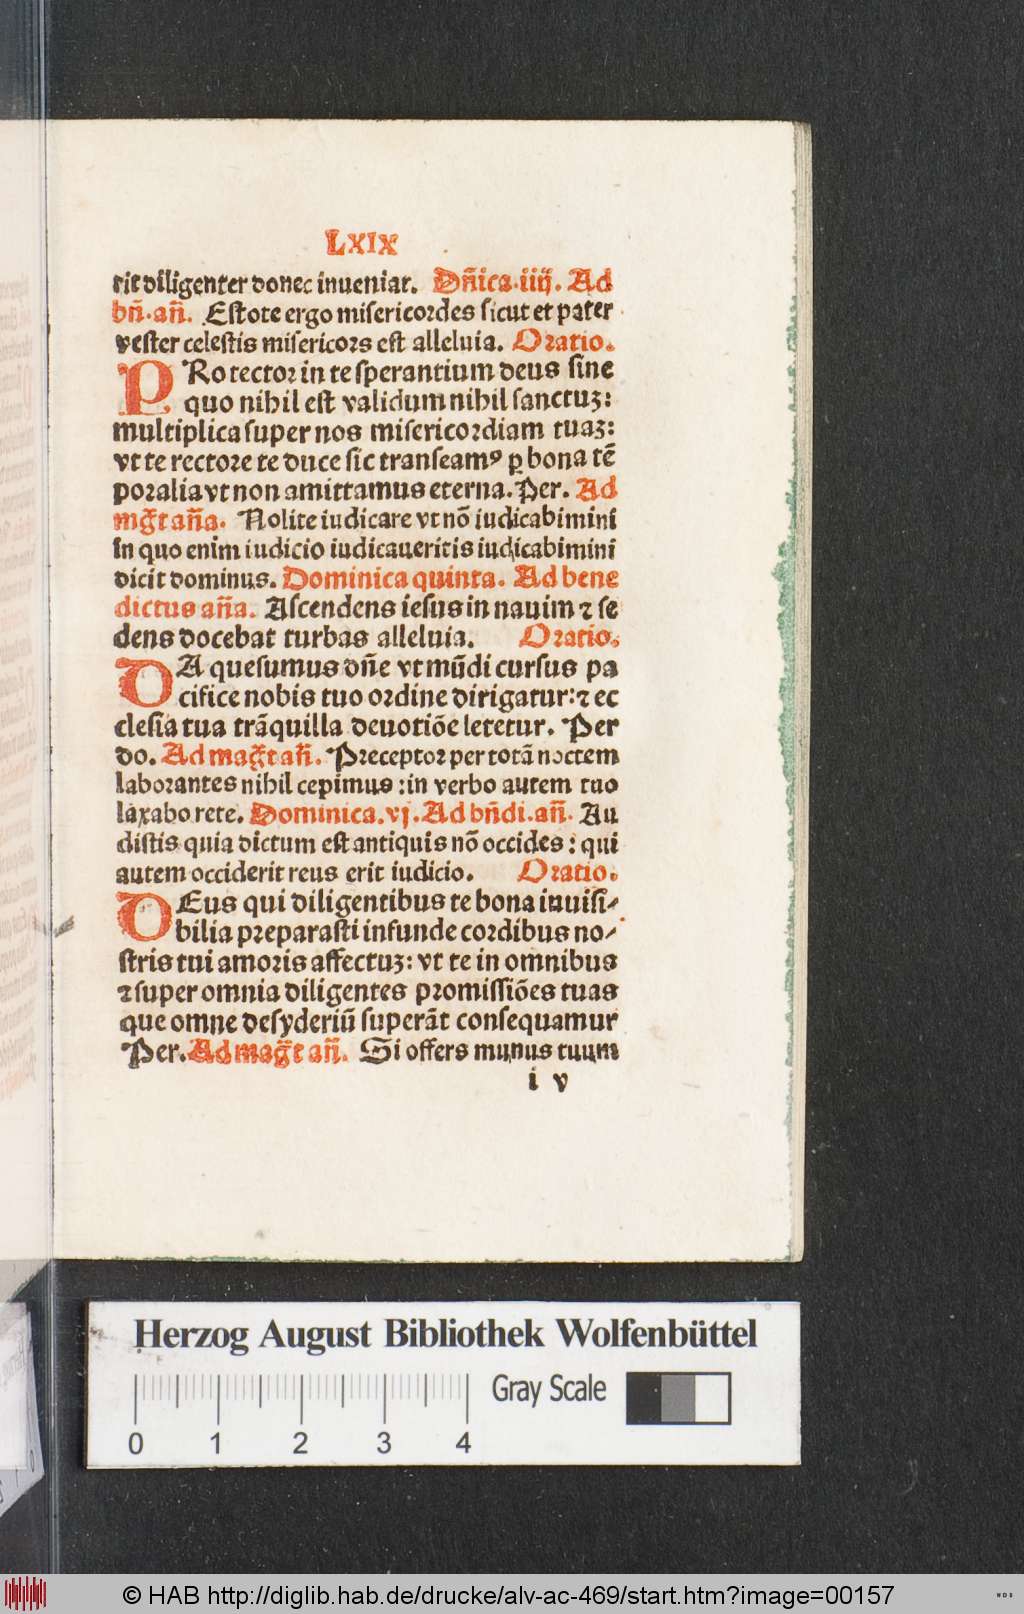 LXIX
rit diligenter donec inueniat. Dñica.iiij. Ad
bñ.añ. Estote ergo misericordes sicut et pater
vester celestis misericors est alleluia. Oratio.
PRotector in te sperantium deus sine
quo nihil est validum nihil sanctuʒ:
multiplica super nos misericordiam tuaʒ:
vt te rectore te duce sic transeamꝰ ꝑ bona tē
poralia vt non amittamus eterna. Per. Ad
mg̃t aña. Nolite iudicare vt nō iudicabimini
in quo enim iudicio iudicaueritis iudicabimini
dicit dominus. Dominica quinta. Ad bene
dictus aña. Ascendens iesus in nauim ⁊ se
dens docebat turbas alleluia. Oratio.
DA quesumus dñe vt mūdi cursus pa
cifice nobis tuo ordine dirigatur: ⁊ ec
clesia tua trāquilla deuotiōe letetur. Per
do. Ad mag̃t añ. Preceptor per totā noctem
laborantes nihil cepimus: in verbo autem tuo
laxabo rete. Dominica.vj. Ad bñdi.añ. Au
distis quia dictum est antiquis nō occides: qui
autem occiderit reus erit iudicio. Oratio.
DEus qui diligentibus te bona inuisi⸗
bilia preparasti infunde cordibus no⸗
stris tui amoris affectuʒ: vt te in omnibus
⁊ super omnia diligentes promissiōes tuas
que omne desyderiū superāt consequamur
Per. Ad mag̃t añ. Si offers munus tuum
i v
Herzog August Bibliothek Wolfenbüttel
Gray Scale
0 1 2 3 4
© HAB http://diglib.hab.de/drucke/alv-ac-469/start.htm?image=00157